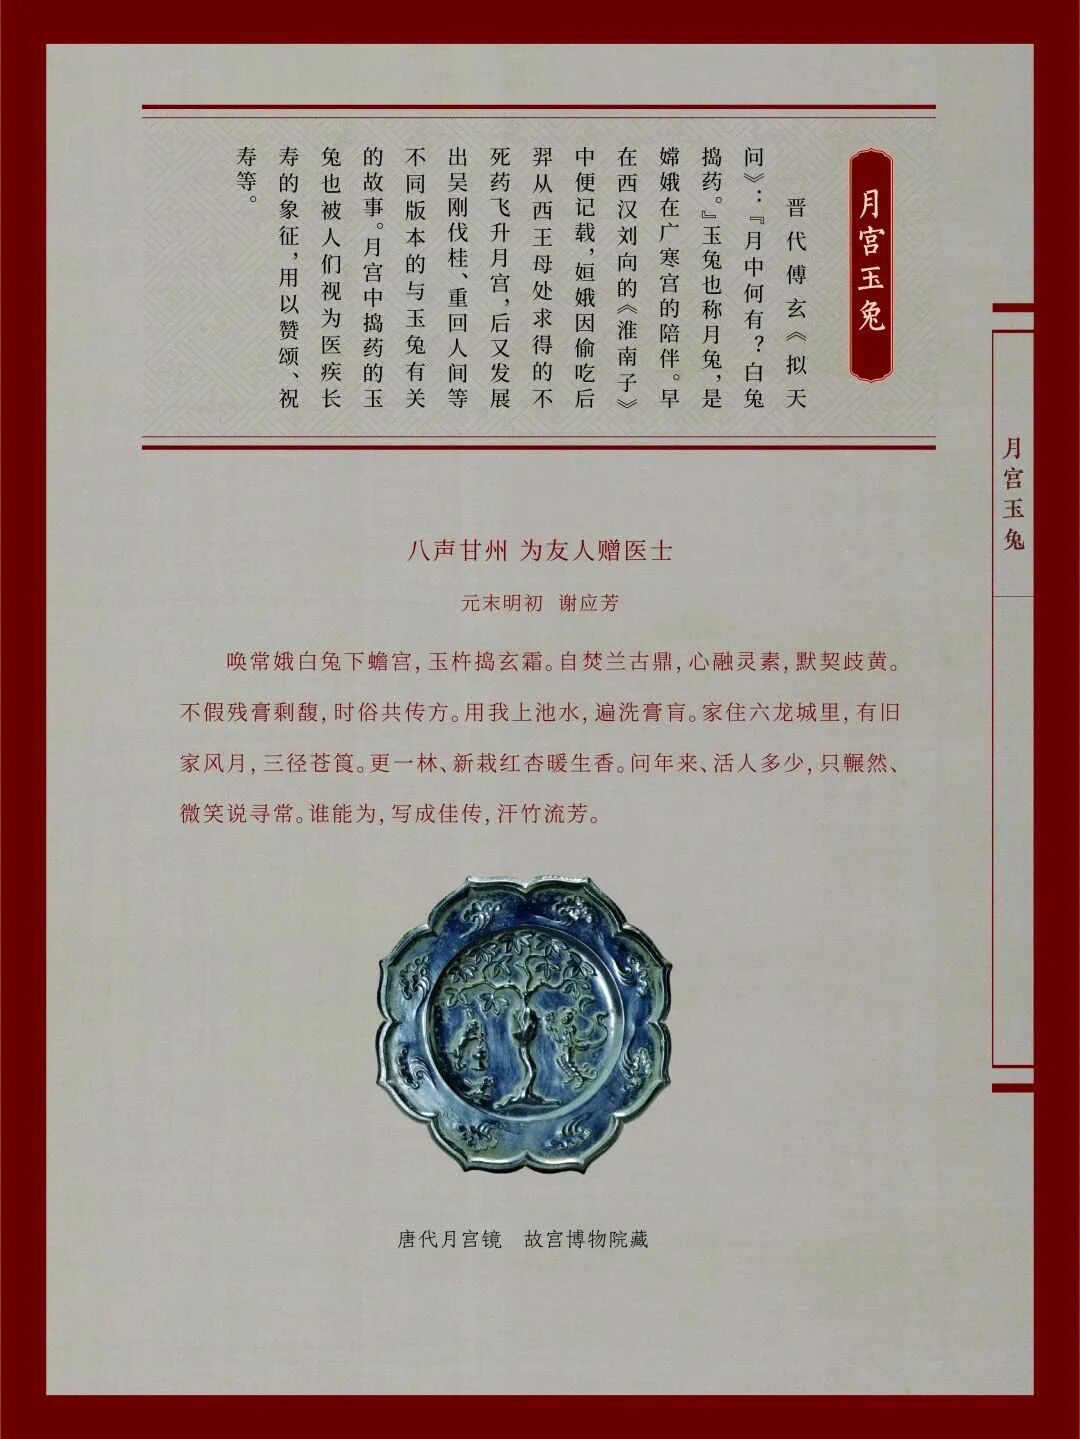 月宫玉兔
晋代傅玄《拟天
问》：『月中何有？白兔
捣药。』玉兔也称月兔，是
嫦娥在广寒宫的陪伴。早
在西汉刘向的《淮南子》
中便记载，姮娥因偷吃后
羿从西王母处求得的不
死药飞升月宫，后又发展
出吴刚伐桂、重回人间等
不同版本的与玉兔有关
的故事。月宫中捣药的玉
兔也被人们视为医疾长
寿的象征，用以赞颂、祝
寿等。
月宫玉兔
八声甘州 为友人赠医士
元末明初 谢应芳
唤常娥白兔下蟾宫，玉杵捣玄霜。自焚兰古鼎，心融灵素，默契歧黄。
不假残膏剩馥，时俗共传方。用我上池水，遍洗膏肓。家住六龙城里，有旧
家风月，三径苍筤。更一林、新栽红杏暖生香。问年来、活人多少，只冁然、
微笑说寻常。谁能为，写成佳传，汗竹流芳。
唐代月宫镜 故宫博物院藏